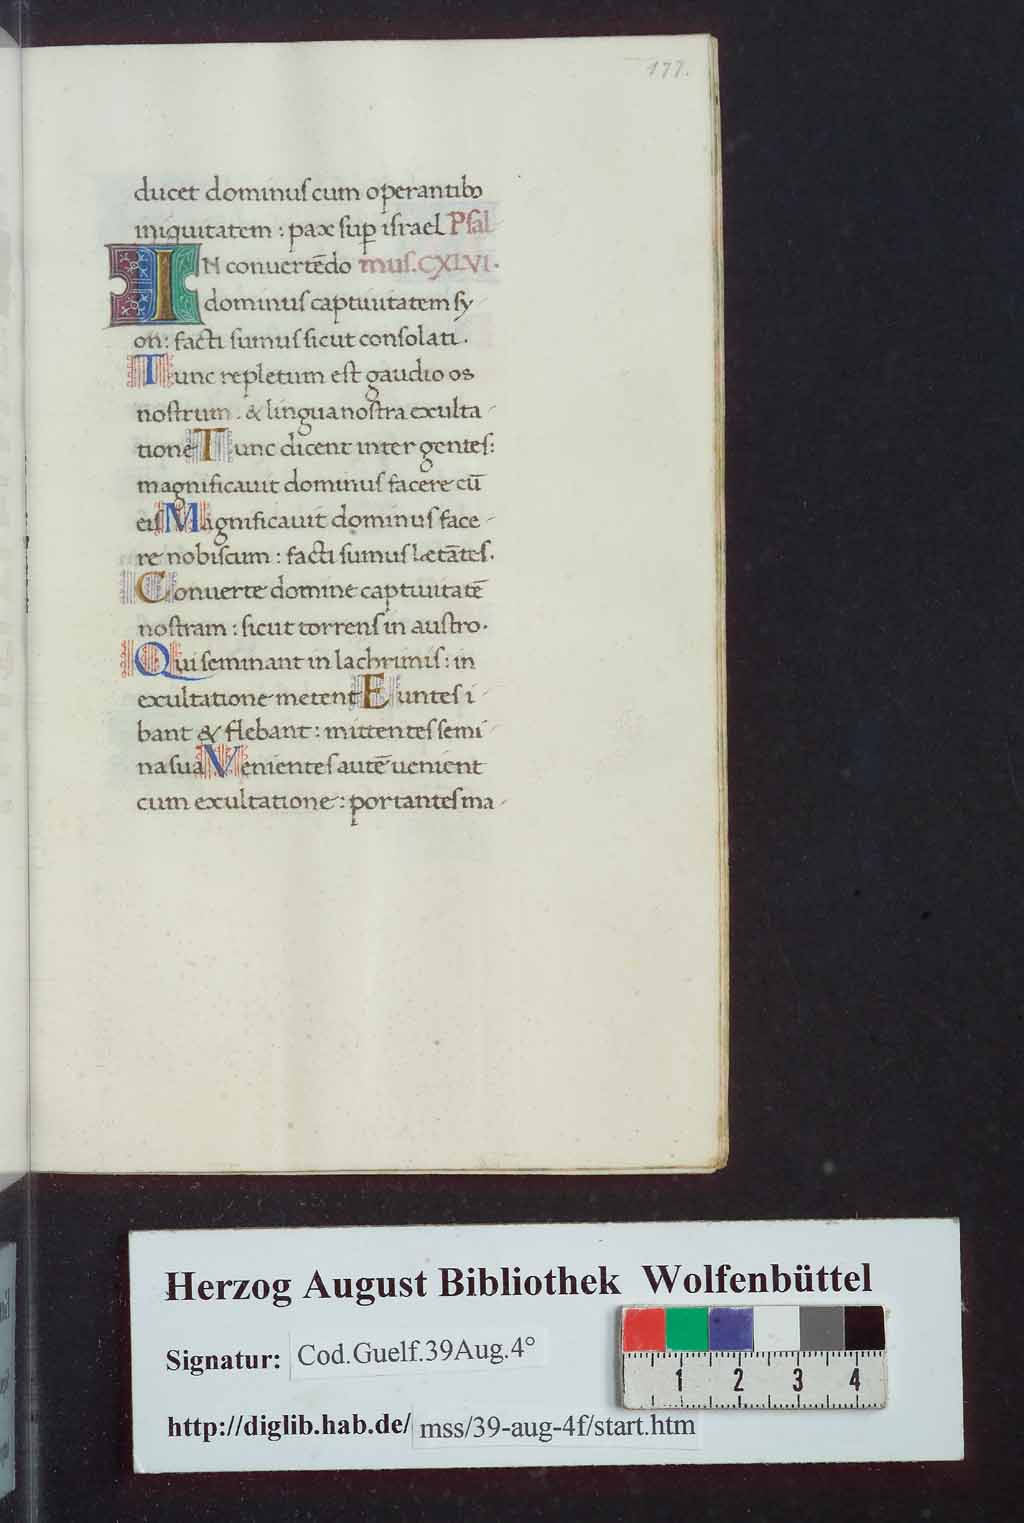 177.
ducet dominuſ cum operantibꝫ
iniquitatem : pax ſuꝑ iſrael Pſal
IN conuertēdo muſ. CXLVI.
dominuſ captiuitatem ſy
on : facti ſumuſ ſicut conſolati .
Tunc repletum eſt gaudio os
noſtrum . & lingua noſtra exulta-
tione Tunc dicent inter genteſ :
magnificauit dominuſ facere cū
eiſ Magnificauit dominuſ face-
re nobiſcum : facti ſumuſ lętāteſ .
Conuerte domine captiuitatē
noſtram : ſicut torrenſ in auſtro .
Qui ſeminant in lachrimiſ : in
exultatione metent Eunteſ i-
bant & flebant : mittenteſ ſemi-
na ſua Venienteſ autē uenient
cum exultatione : portanteſ ma-
Herzog August Bibliothek Wolfenbüttel
Signatur: Cod.Guelf.39Aug.4°
1 2 3 4
http://diglib.hab.de/ mss/39-aug-4f/start.htm